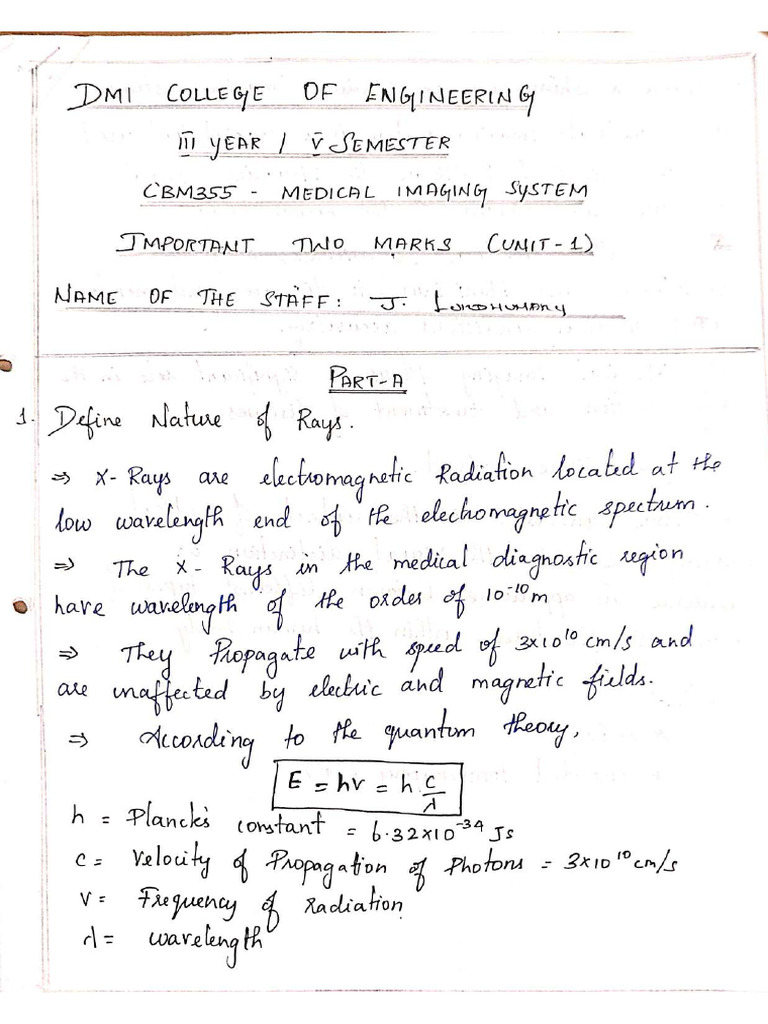 DMI COLLEGE OF ENGINEERING
III YEAR / V SEMESTER
CBM355 - MEDICAL IMAGING SYSTEM
IMPORTANT TWO MARKS (UNIT-1)
NAME OF THE STAFF: J.
PART-A
1. Define Nature of Rays.
⇒ X-Rays are electromagnetic Radiation located at the
low wavelength end of the electromagnetic spectrum.
⇒ The X-Rays in the medical diagnostic region
have wavelength of the order of 10⁻¹⁰ m
⇒ They Propagate with speed of 3x10¹⁰ cm/s and
are unaffected by electric and magnetic fields.
⇒ According to the quantum theory,
E = hν = h.c/λ
h = Planck's constant = 6.32x10⁻³⁴ Js
c = Velocity of Propagation of Photons = 3x10¹⁰ cm/s
ν = Frequency of radiation
λ = wavelength